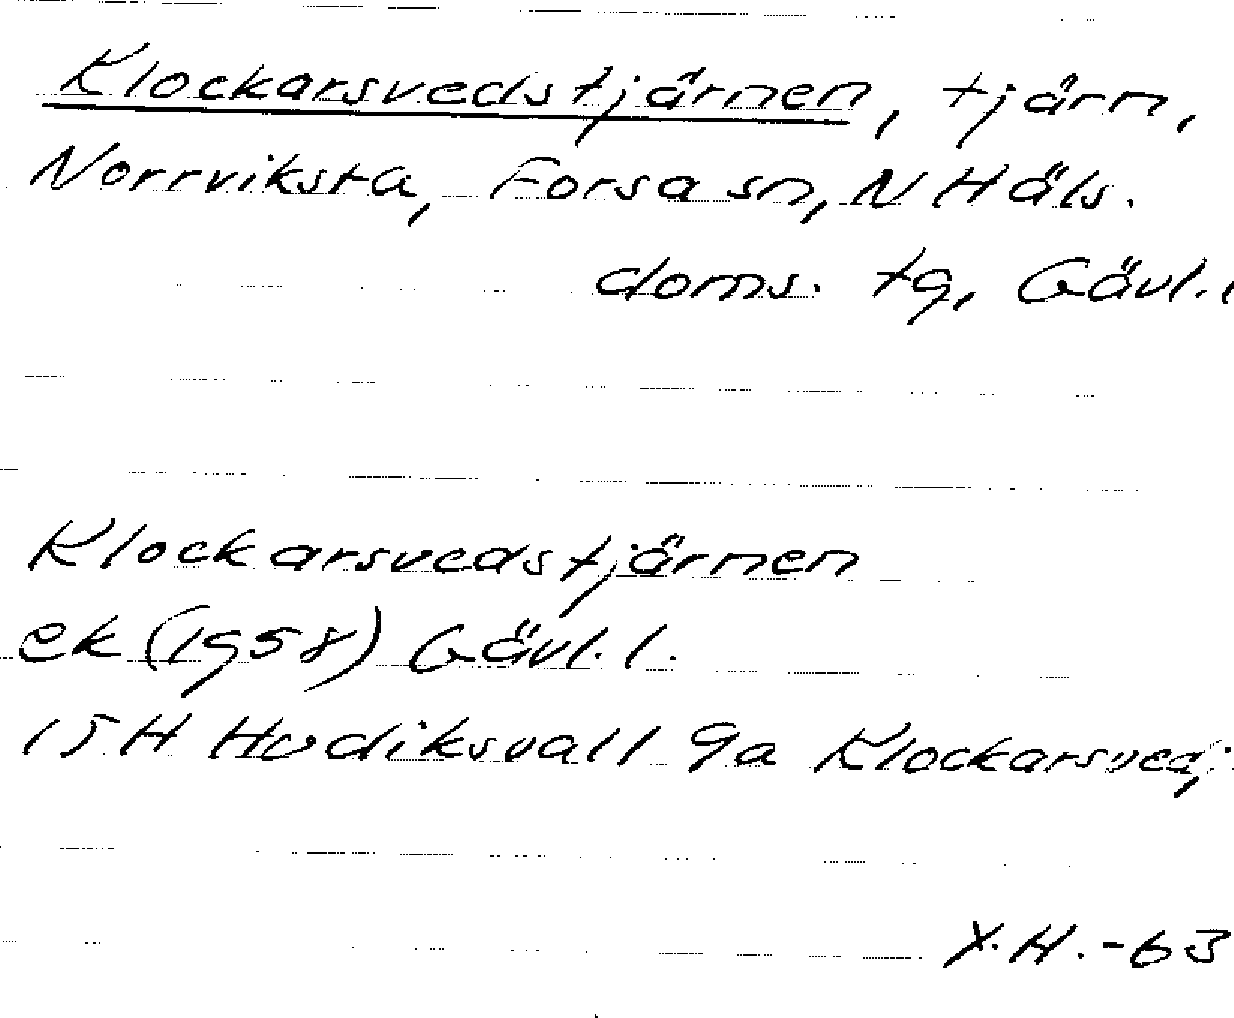 Klockarsvedstjärnen, tjärn,
Norrviksta, Forsa sn, N Häls.
doms. tg, Gävl. l
Klockarsvedstjärnen
ek (1958) Gävl. l.
15H Hudiksvall 9a Klockarsved;
X.H. -63